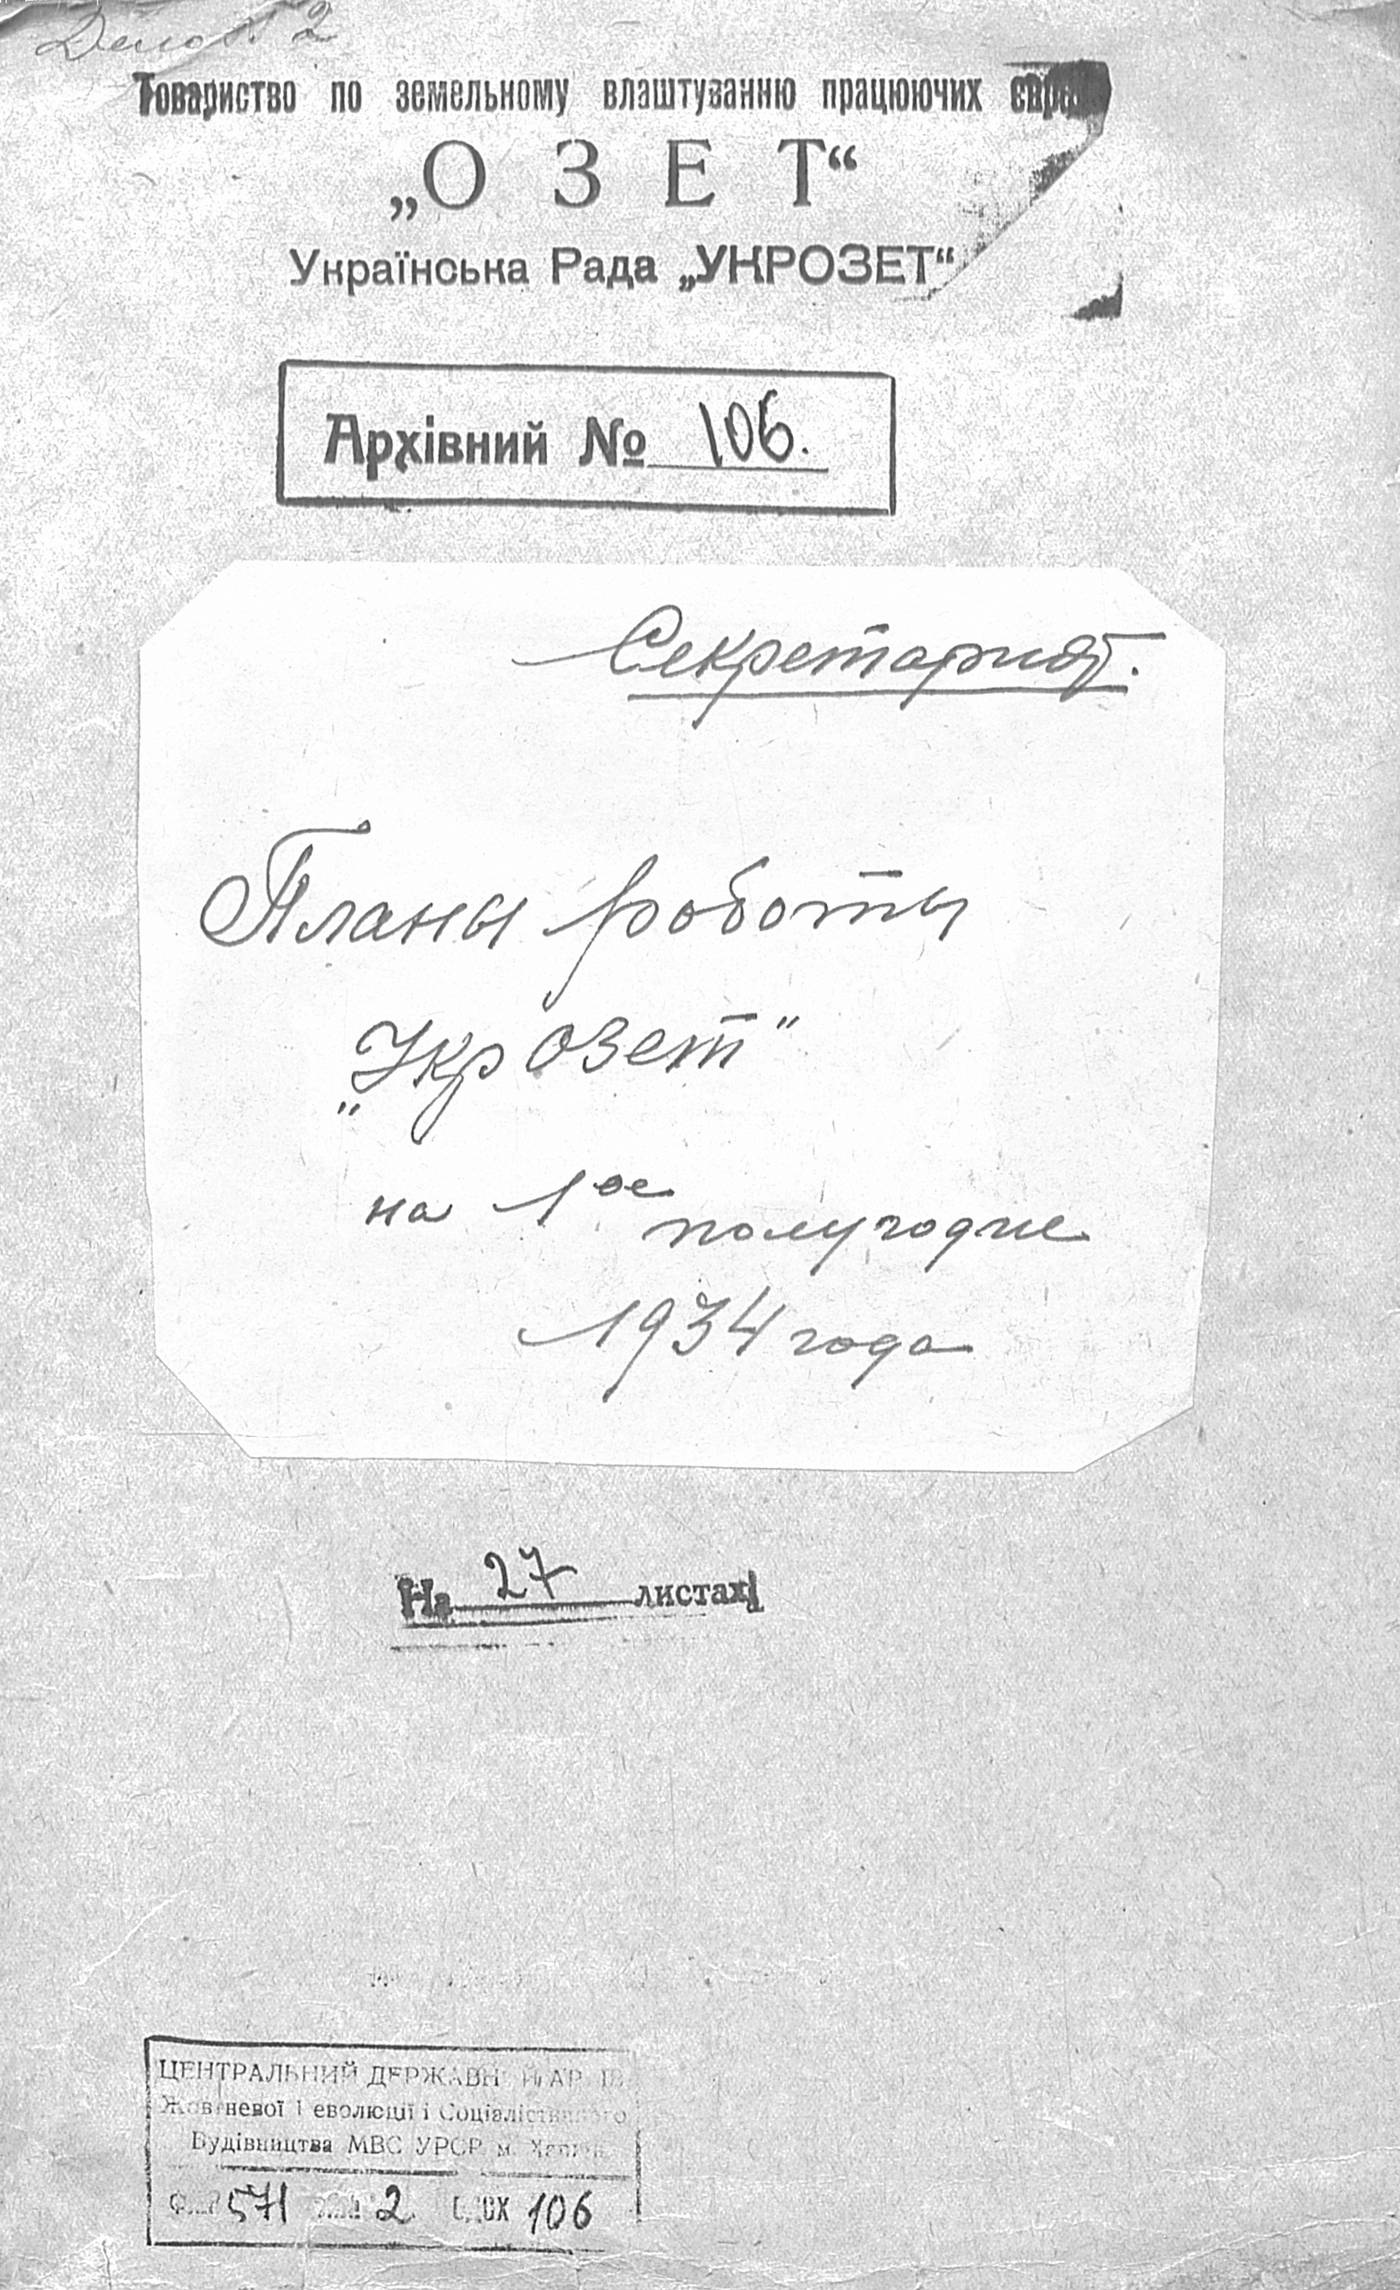 Дело № 2
Товариство по земельному влаштуванню працюючих
„ОЗЕТ“
Українська Рада „УКРОЗЕТ“
Архівний № 106.
Секретариат.
Планы работы
„Укрозет"
на 1ое полугодие
1934 года
На 27 листах
ЦЕНТРАЛЬНИЙ ДЕРЖАВНИЙ АРХІВ
Жовтневої Революції і Соціалістичного
Будівництва МВС УРСР м.
571 2 106